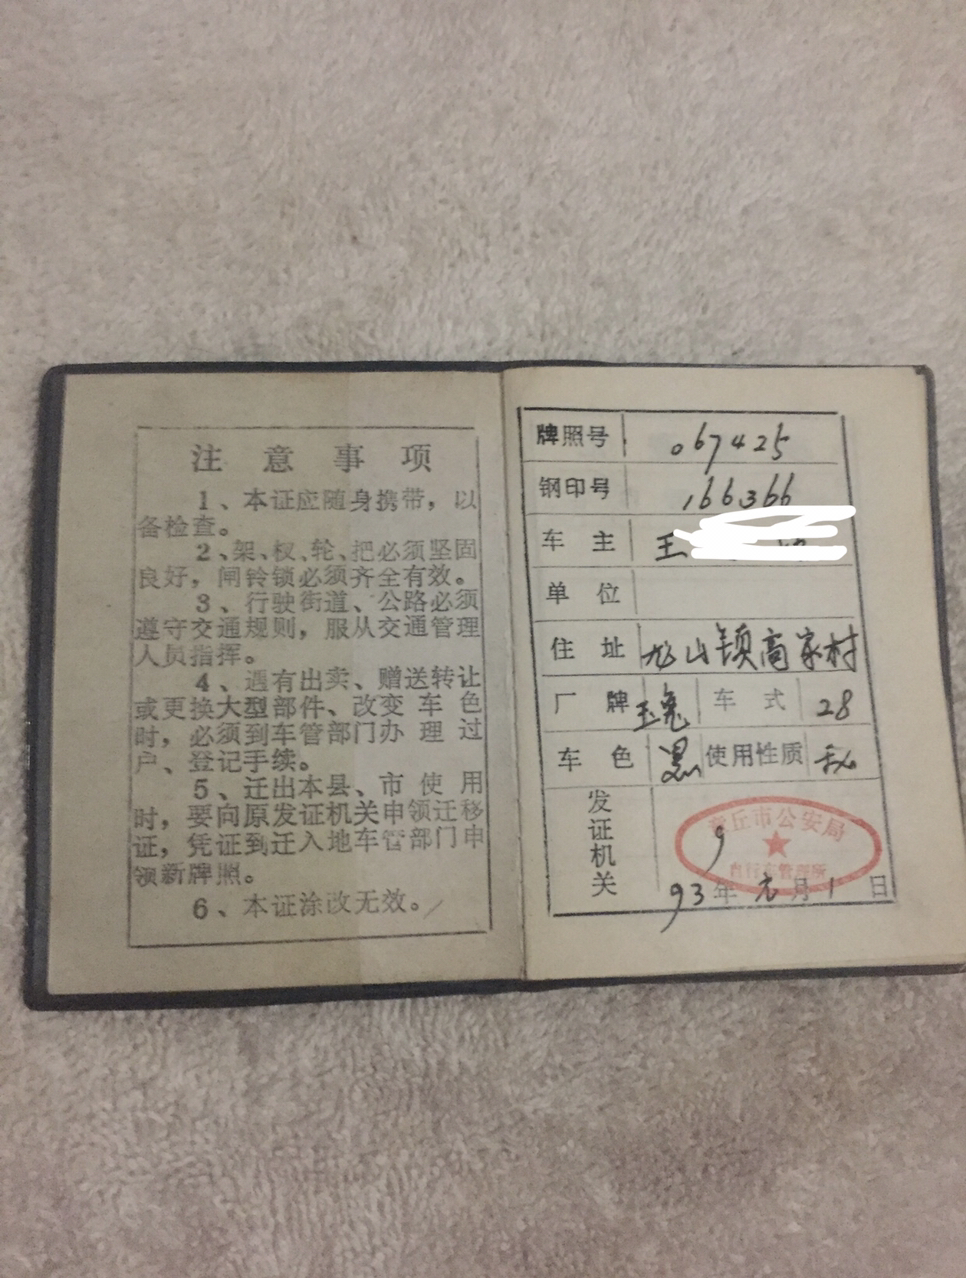 注意事项
1、本证应随身携带，以
备检查。
2、架、杈、轮、把必须坚固
良好，闸铃锁必须齐全有效。
3、行驶街道、公路必须
遵守交通规则，服从交通管理
人员指挥。
4、遇有出卖、赠送转让
或更换大型部件、改变车色
时，必须到车管部门办理过
户、登记手续。
5、迁出本县、市使用
时，要向原发证机关申领迁移
证，凭证到迁入地车管部门申
领新牌照。
6、本证涂改无效。
牌照号 067425
钢印号 166366
车主 王
单位
住址 山镇高家村
厂牌 玉兔 车式 28
车色 黑 使用性质 私
发证机关
丘市公安局
自行车管理所
93年元月1日